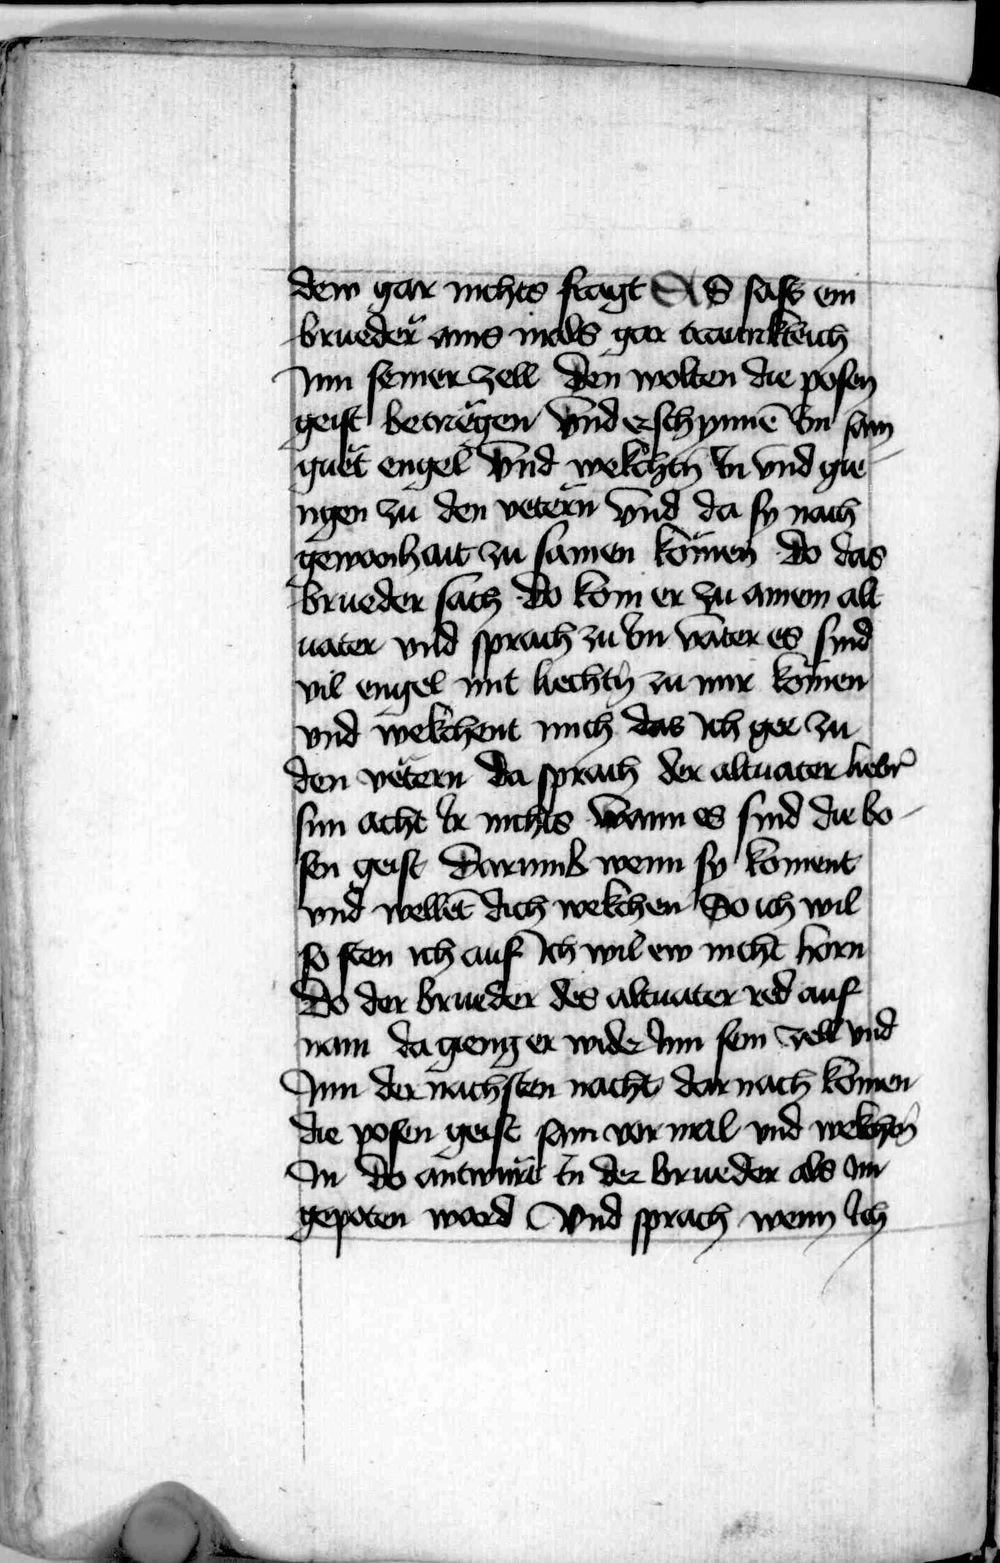 dem gar nichts fragt Es sass ein
brueder ains mals gar traurikleich
Inn seiner zell Den wolten die posen
geist betriegen vnd erschynnē Im sam
guet engel vnd wekchtn̄ In vnd gie¬
ngen zu den vetern vnd da sy nach
gewonhait zu samen komen Do das
brueder sach Do kom er zu ainem alt
uater vnd sprach zu Im vater es sind
vil engel mit liechtn̄ zu mir komen
vnd wekchent mich das Ich gee zu
den vetern Da sprach der altuater liebr̄
sun acht Ir nichts wann es sind die bo¬
sen geist Darumb wenn sy koment
vnd wellēt dich wekchen So ich wil
so sten ich auf Ich wil ew nicht horn
Do der brueder des altuater red auf
nam da gieng er wider Inn sein zell vnd
Inn der nachsten nacht darnach komen
die posen geist sam vor mal vnd wekchtn̄
In Do antwurt In der brueder als Im
gepoten ward Vnd sprach wenn Ich